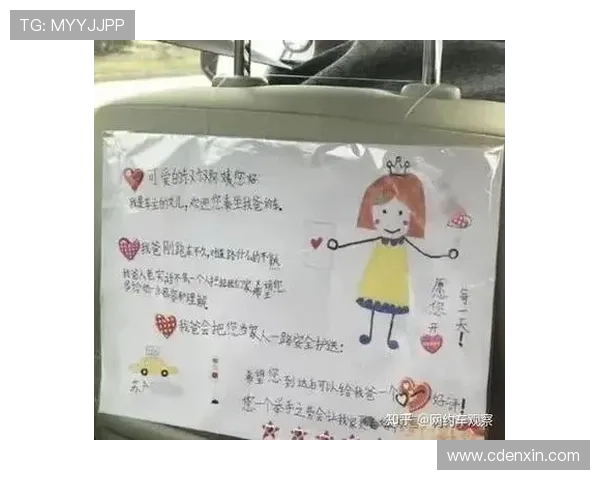 TG: MYYJJPP
可爱的叔叔阿姨您好:
我是车主的女儿,欢迎您乘坐我爸的车。
我爸刚跑车不久,对走路什么的不熟
我爸人老实话不多,一个人
多给他一点 和理解。
我爸会把您当家人一路安全护送:
希望您到达后可以给我爸一个好评!
您一个举手之劳会让我家
愿您开
每一天!
苏
知乎 @网约车观察
www.cdenxin.com